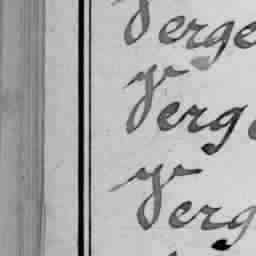 Verge
Verg
Verg